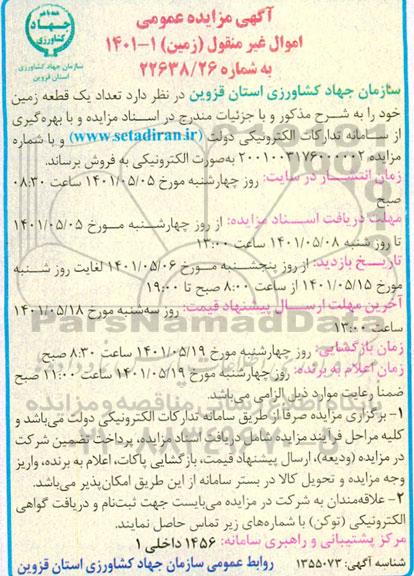 آگهی مزایده عمومی
اموال غیر منقول (زمین) ۱-۱۴۰۱
به شماره ۲۲۶۳۸/۲۶
جهاد کشاورزی
سازمان جهاد کشاورزی
استان قزوین
سازمان جهاد کشاورزی استان قزوین در نظر دارد تعداد یک قطعه زمین
خود را به شرح مذکور و با جزئیات مندرج در اسناد مزایده و با بهره‌گیری
از سامانه تدارکات الکترونیکی دولت (www.setadiran.ir) و با شماره
مزایده ۲۰۰۱۰۰۳۱۷۶۰۰۰۰۰۲ به‌صورت الکترونیکی به فروش برساند.
زمان انتشار در سایت: روز چهارشنبه مورخ ۱۴۰۱/۰۵/۰۵ ساعت ۰۸:۳۰
صبح
مهلت دریافت اسناد مزایده: از روز چهارشنبه مورخ ۱۴۰۱/۰۵/۰۵
تا روز شنبه ۱۴۰۱/۰۵/۰۸ ساعت ۱۳:۰۰
تاریخ بازدید: از روز پنجشنبه مورخ ۱۴۰۱/۰۵/۰۶ لغایت روز شنبه
مورخ ۱۴۰۱/۰۵/۱۵ از ساعت ۸:۰۰ صبح تا ۱۹:۰۰
آخرین مهلت ارسال پیشنهاد قیمت: روز سه‌شنبه مورخ ۱۴۰۱/۰۵/۱۸
ساعت ۱۳:۰۰
ParsNamadData
زمان بازگشایی: روز چهارشنبه مورخ ۱۴۰۱/۰۵/۱۹ ساعت ۸:۳۰ صبح
زمان اعلام به برنده: روز چهارشنبه مورخ ۱۴۰۱/۰۵/۱۹ ساعت ۱۱:۰۰ صبح
ضمناً رعایت موارد ذیل الزامی می‌باشد.
۱- برگزاری مزایده صرفاً از طریق سامانه تدارکات الکترونیکی دولت می‌باشد و
کلیه مراحل فرآیند مزایده شامل دریافت اسناد مزایده، پرداخت تضمین شرکت
در مزایده (ودیعه)، ارسال پیشنهاد قیمت، بازگشایی پاکات، اعلام به برنده، واریز
وجه مزایده و تحویل کالا در بستر سامانه از این طریق امکان‌پذیر می‌باشد.
۲- علاقه‌مندان به شرکت در مزایده می‌بایست جهت ثبت‌نام و دریافت گواهی
الکترونیکی (توکن) با شماره‌های زیر تماس حاصل نمایند.
مرکز پشتیبانی و راهبری سامانه: ۱۴۵۶ داخلی ۱
شناسه آگهی: ۱۳۵۵۰۷۳ روابط عمومی سازمان جهاد کشاورزی استان قزوین